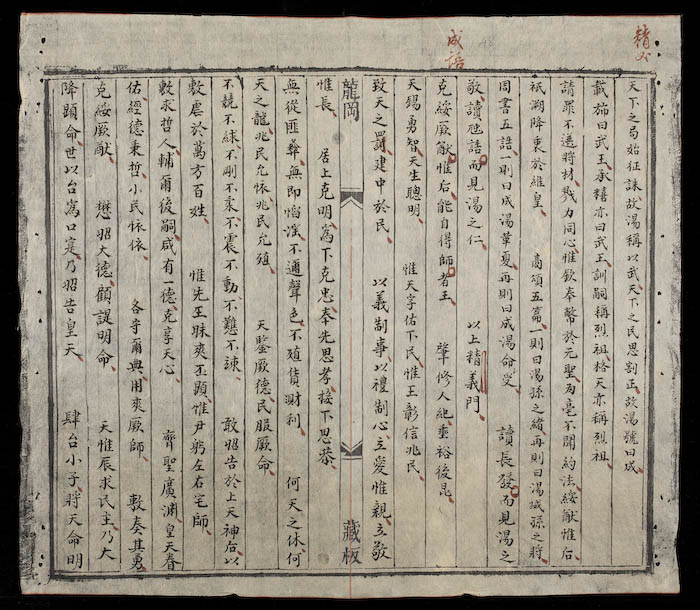 精义
成語
天下之局始征誅故湯稱以武天下之民思割正故湯號曰成
載旆曰武王承糦亦曰武王訓嗣稱烈祖格天亦稱烈祖
請罪不遑將材戮力同心惟欽奉幣於元聖為亳不聞約法綏猷惟后
祇溯降衷於維皇 商頌五篇一則曰湯孫之緒再則曰湯孫之將
周書五誥一則曰成湯革夏再則曰成湯命受 讀長發而見湯之
敬讀虺誥而見湯之仁 以上精義門
克綏厥猷惟后能自得師者王 肇修人紀垂裕後昆
天錫勇智天生聰明 惟天孚佑下民惟王彰信兆民
致天之罰建中於民 以義制事以禮制心立愛惟親立敬
龍岡 藏板
惟長 居上克明為下克忠奉先思孝接下思恭
無從匪彝無即慆淫不邇聲色不殖貨財利 何天之休何
天之龍兆民允懷兆民允殖 天鑒厥德民服厥命
不競不絿不剛不柔不震不動不戁不竦 敢昭告於上天神后以
敷虐於萬方百姓 惟先王昧爽丕顯惟尹躬左右宅師
敷求哲人輔爾後嗣咸有一德克享天心 齊聖廣淵皇天眷
佑經德秉哲小民懷依 各守爾典用爽厥師 敷奏其勇
克綏厥猷 懋昭大德顧諟明命 天惟辰求民主乃大
降顯命世以台為口寔乃昭告皇天 肆台小子將天命明